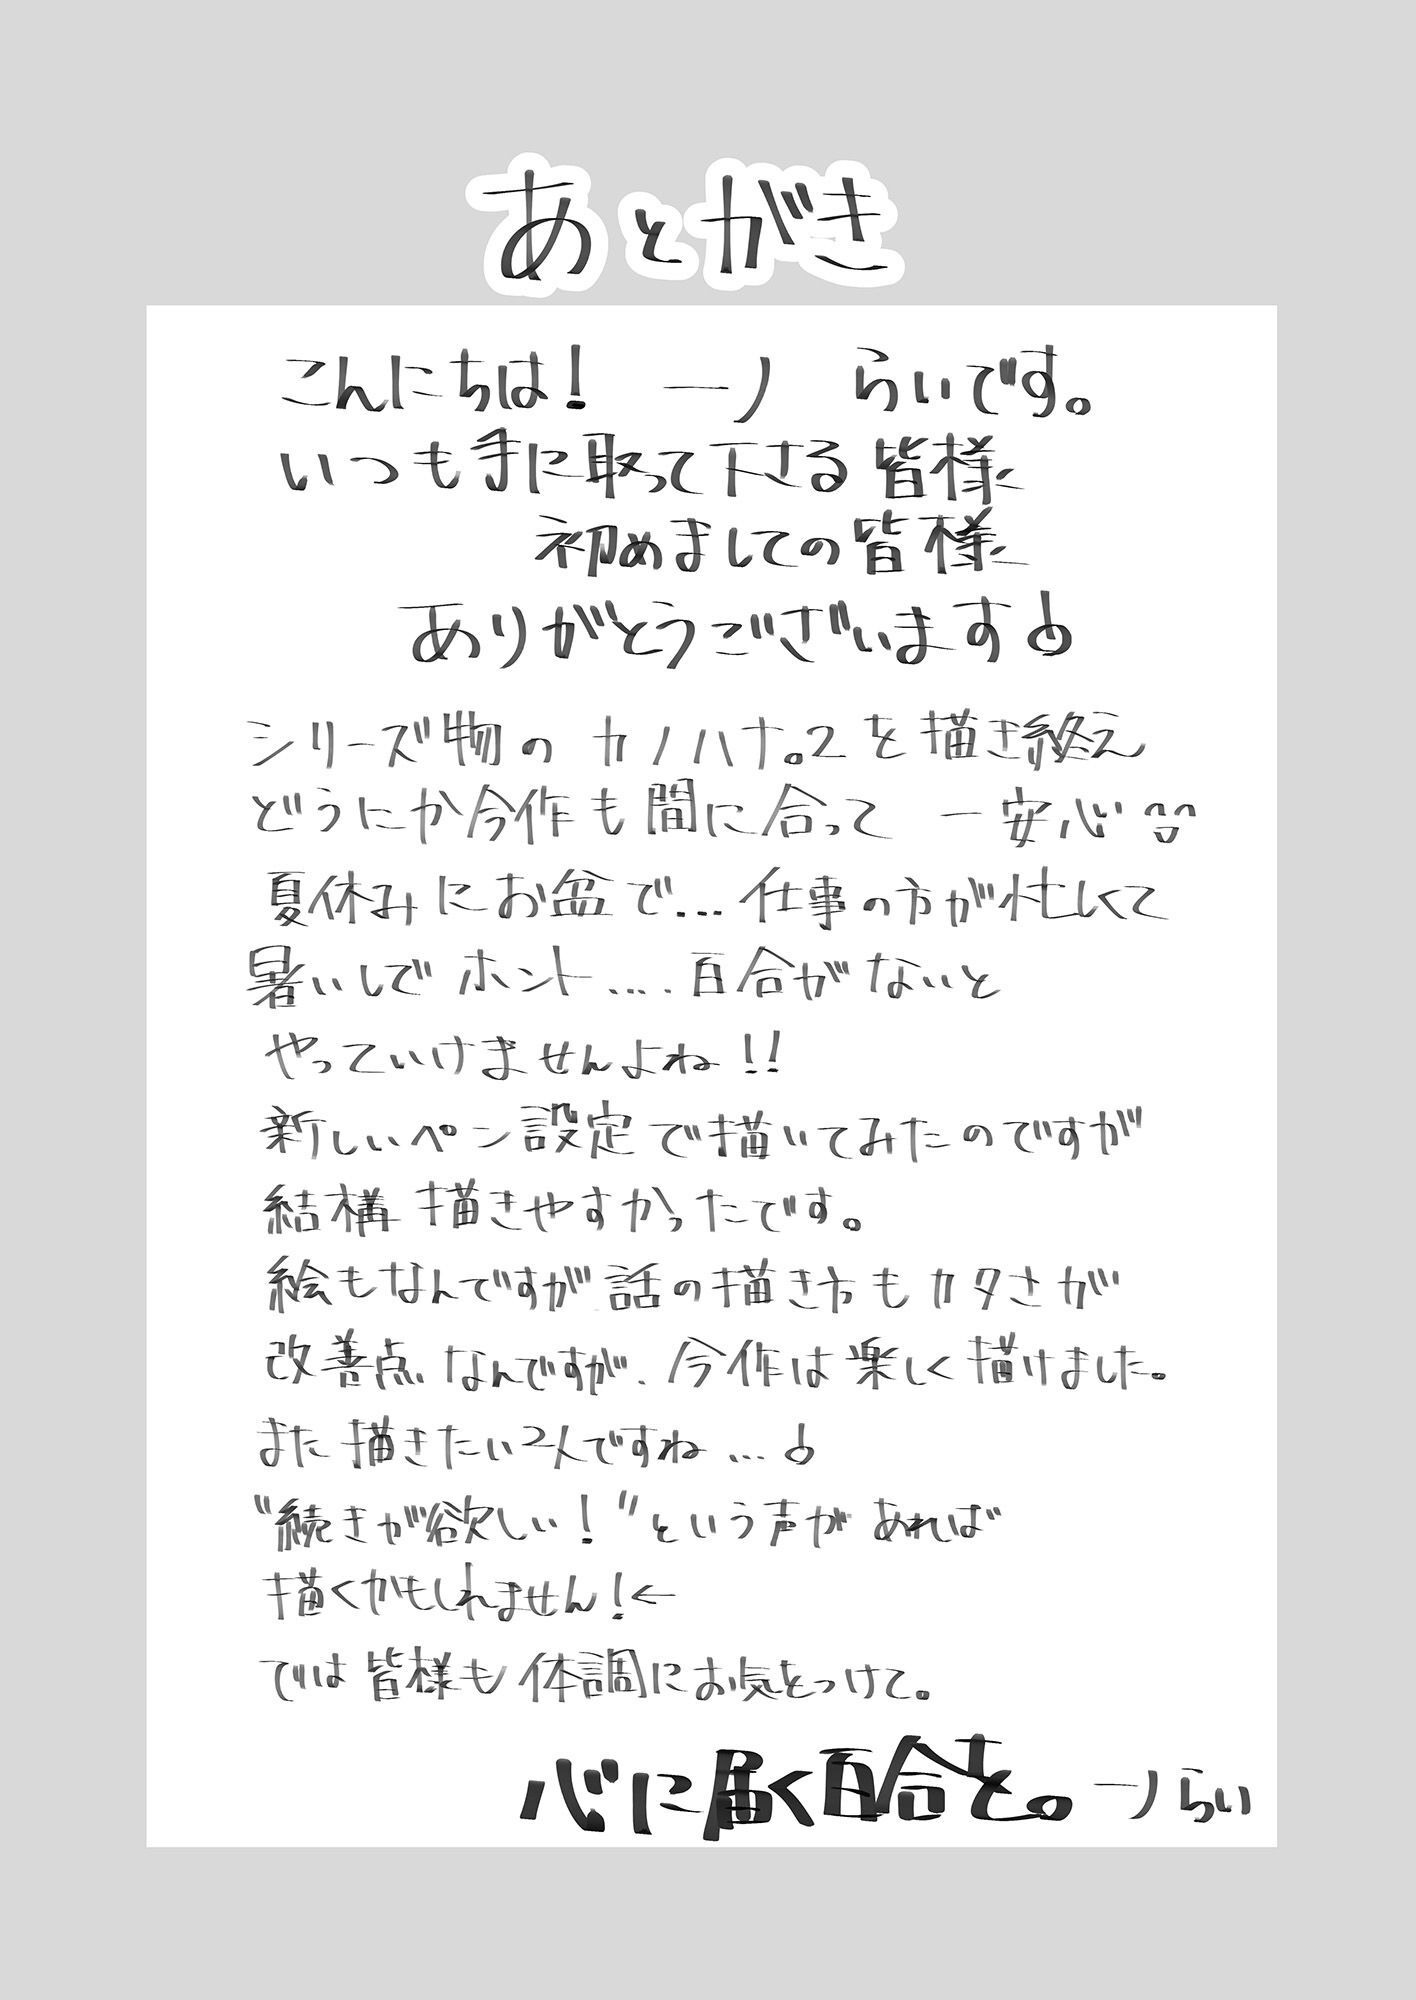 あとがき
こんにちは! 一ノ らいです。
いつも手に取って下さる皆様
初めましての皆様
ありがとうございます♂
シリーズ物の カノハナ。2を描き終え
どうにか今作も間に合って 一安心
夏休みにお盆で...仕事の方が忙しくて
暑いしでホント....百合がないと
やっていけませんよね!!
新しいペン設定で描いてみたのですが
結構描きやすかったです。
絵もなんですが話の描き方もカタさが
改善点なんですが、今作は楽しく描けました。
また描きたい2人ですね...
"続きが欲しい!"という声があれば
描くかもしれません!←
では皆様も体調にお気をつけて。
心に届く百合を。一ノらい